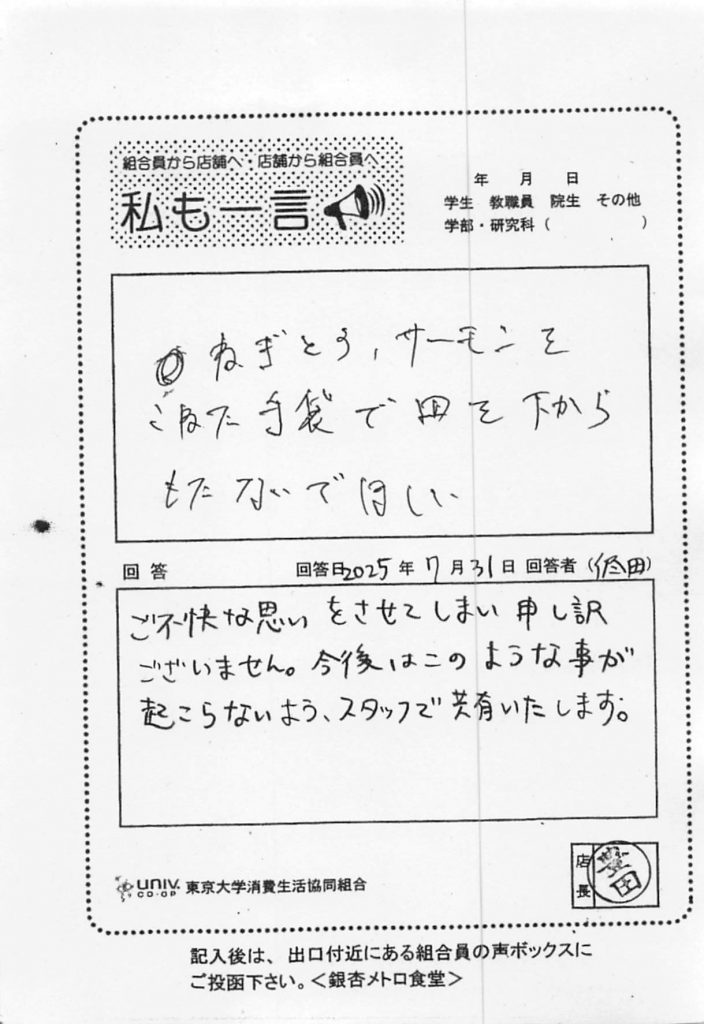 組合員から店舗へ・店舗から組合員へ
私も一言
年 月 日
学生 教職員 院生 その他
学部・研究科( )
ねぎとろ、サーモンを
こねた手袋で皿を下から
もたないでほしい
回答 回答日2025年7月31日 回答者(田)
ご不快な思いをさせてしまい申し訳
ございません。今後はこのような事が
起こらないよう、スタッフで共有いたします。
UNIV.
CO-OP
東京大学消費生活協同組合
店長
豊田
記入後は、出口付近にある組合員の声ボックスに
ご投函下さい。<銀杏メトロ食堂>